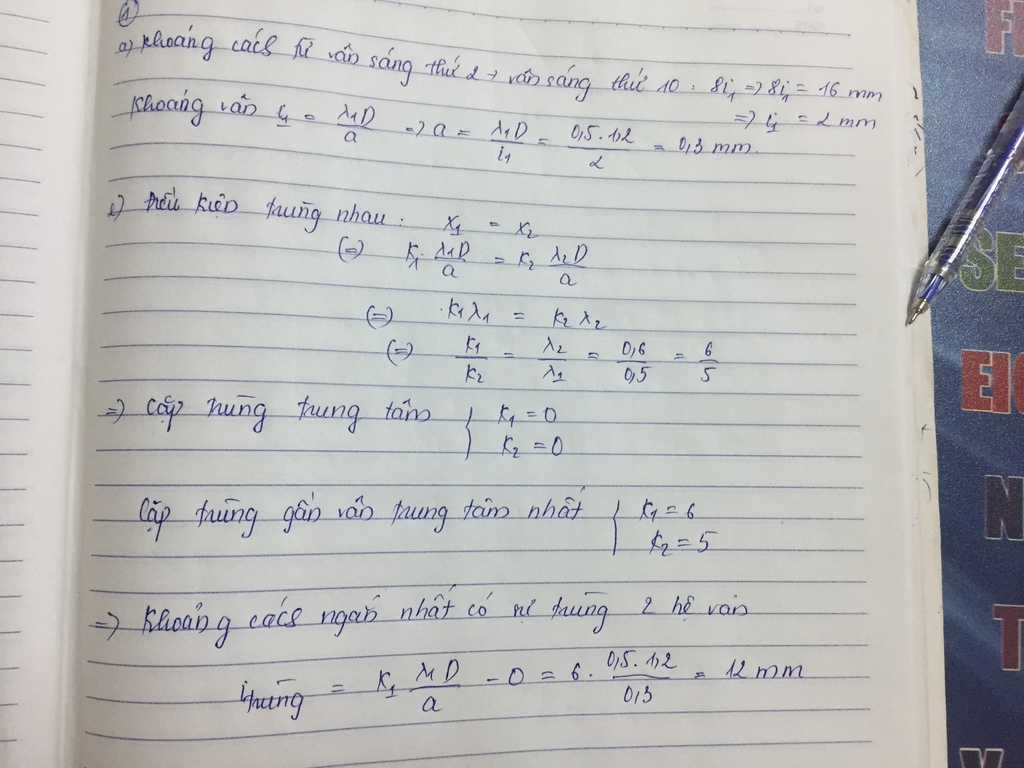 a) Khoảng cách từ vân sáng thứ 2 → vân sáng thứ 10 : 8i₁ => 8i₁ = 16 mm
=> i₁ = 2 mm
Khoảng vân i₁ = λ₁D/a => a = λ₁D/i₁ = 0,5.1,2/2 = 0,3 mm.
Điều kiện trùng nhau : x₁ = x₂
(=) K₁.λ₁D/a = K₂ λ₂D/a
(=) K₁λ₁ = K₂λ₂
(=) K₁/K₂ = λ₂/λ₁ = 0,6/0,5 = 6/5
=> cặp trùng trung tâm { K₁ = 0
K₂ = 0
Cặp trùng gần vân trung tâm nhất { K₁ = 6
K₂ = 5
=) Khoảng cách ngắn nhất có sự trùng 2 hệ vân
i trùng = K₁ λ₁D/a - 0 = 6. 0,5.1,2/0,3 = 12 mm
SE
N
T
Y